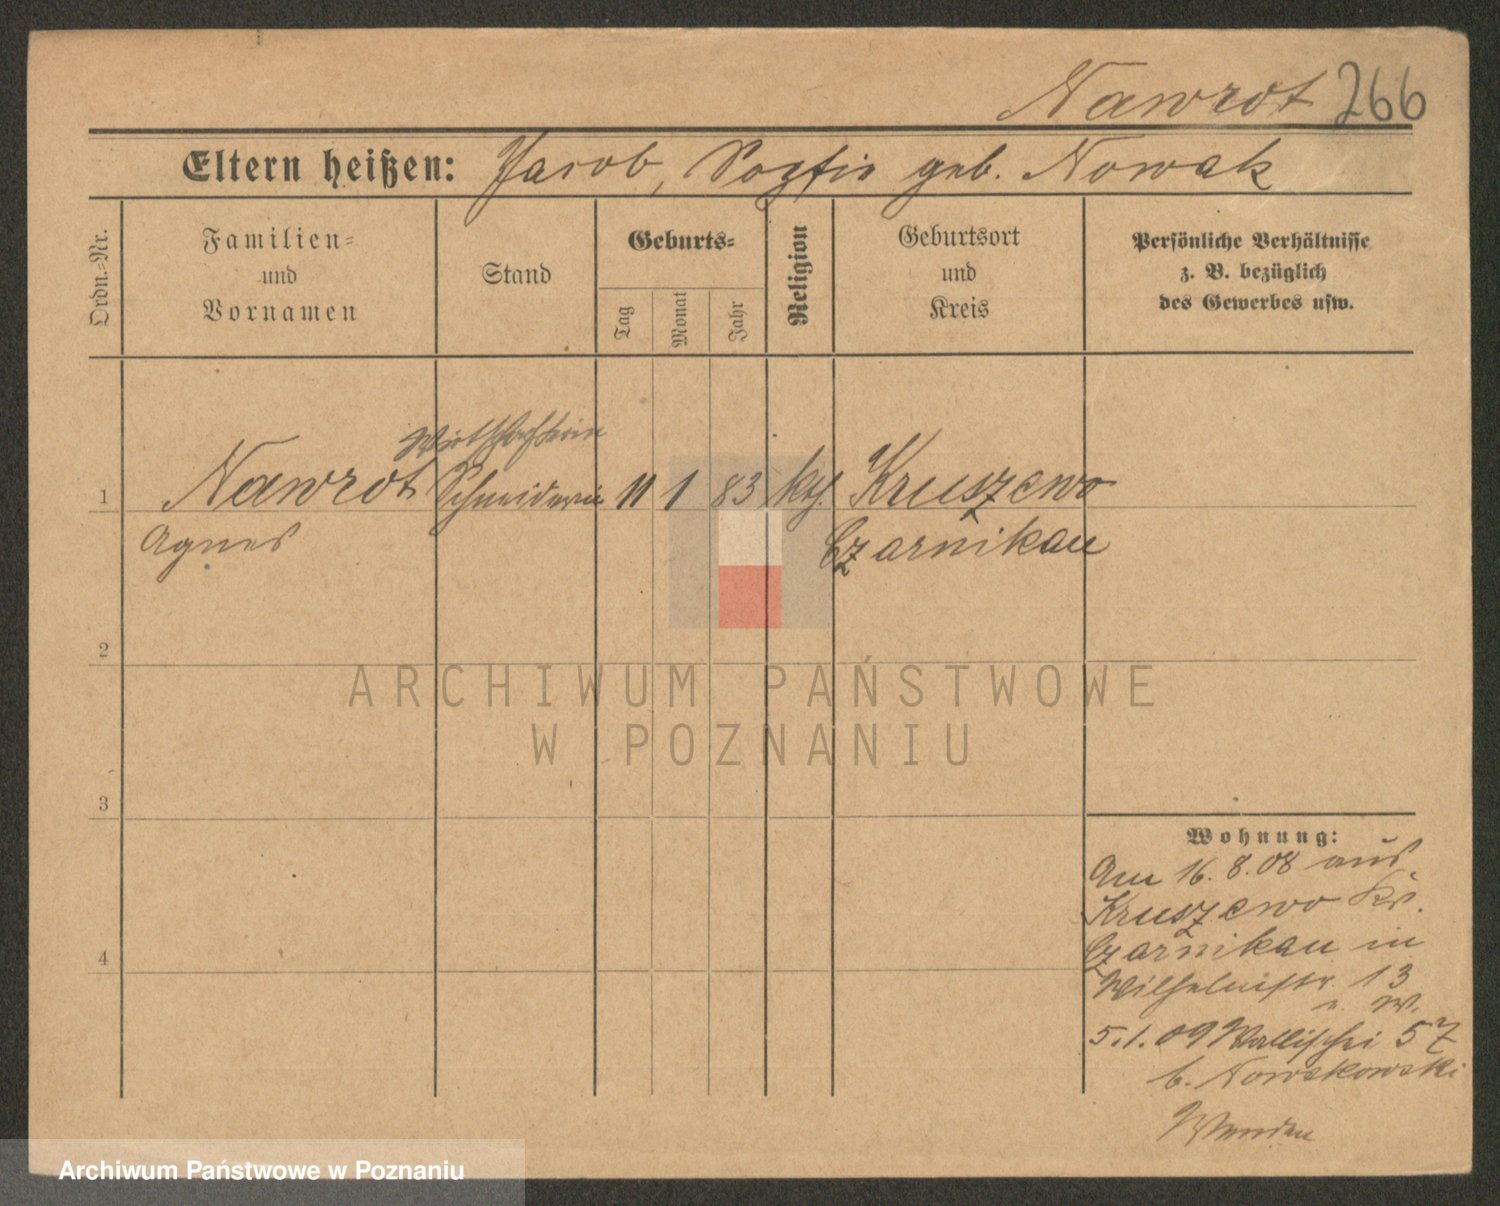 Nawrot 266
Eltern heißen: Jacob, Sozfie geb. Nowak
Ordn.=Nr.
Familien=
und
Vornamen
Stand
Geburts=
Tag
Monat
Jahr
Religion
Geburtsort
und
Kreis
Persönliche Verhältnisse
z. B. bezüglich
des Gewerbes usw.
Wirtschafterin
1 Nawrot Schneiderin 11 1 83 kth. Kruszewo
Agnes Czarnikau
2
3
4
Wohnung:
Am 16.8.08 aus
Kruszewo Kr.
Czarnikau in
Wilhelmstr. 13
5.1.09 Wallischei 57
b. Nowakowski
Wenden
ARCHIWUM PAŃSTWOWE
W POZNANIU
Archiwum Państwowe w Poznaniu